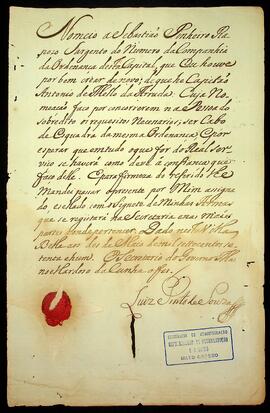 Nomeio a Sebastião Pinheiro Ra
pozo Sargento do Numero da Companhia
da Ordenança desta Capital, que Eu houve
por bem crear de novo; de que he Capitão
Antonio de Mello da
Cuja No
meação faço por concorrerem na Pessoa do
sobredito os requezitos Necessarios; ser Cabo
de Esquadra da mesma Ordenança; E por
esperar que em tudo o que for do Real ser
viço se haverá como deve á confiança que
faço delle. E para firmeza do referido lhe
Mandei passar a prezente por Mim assigna
da e sellada com o Signete de Minhas Armas
que se registará na Secretaria e nas mais
partes donde pertencer. Dado nesta Villa
Bella aos de Maio de mil settecentos se
tenta e hum. O Secretario do Governo
Cardozo da Cunha a fes.
Luiz Pinto de Souza
MATO GROSSO